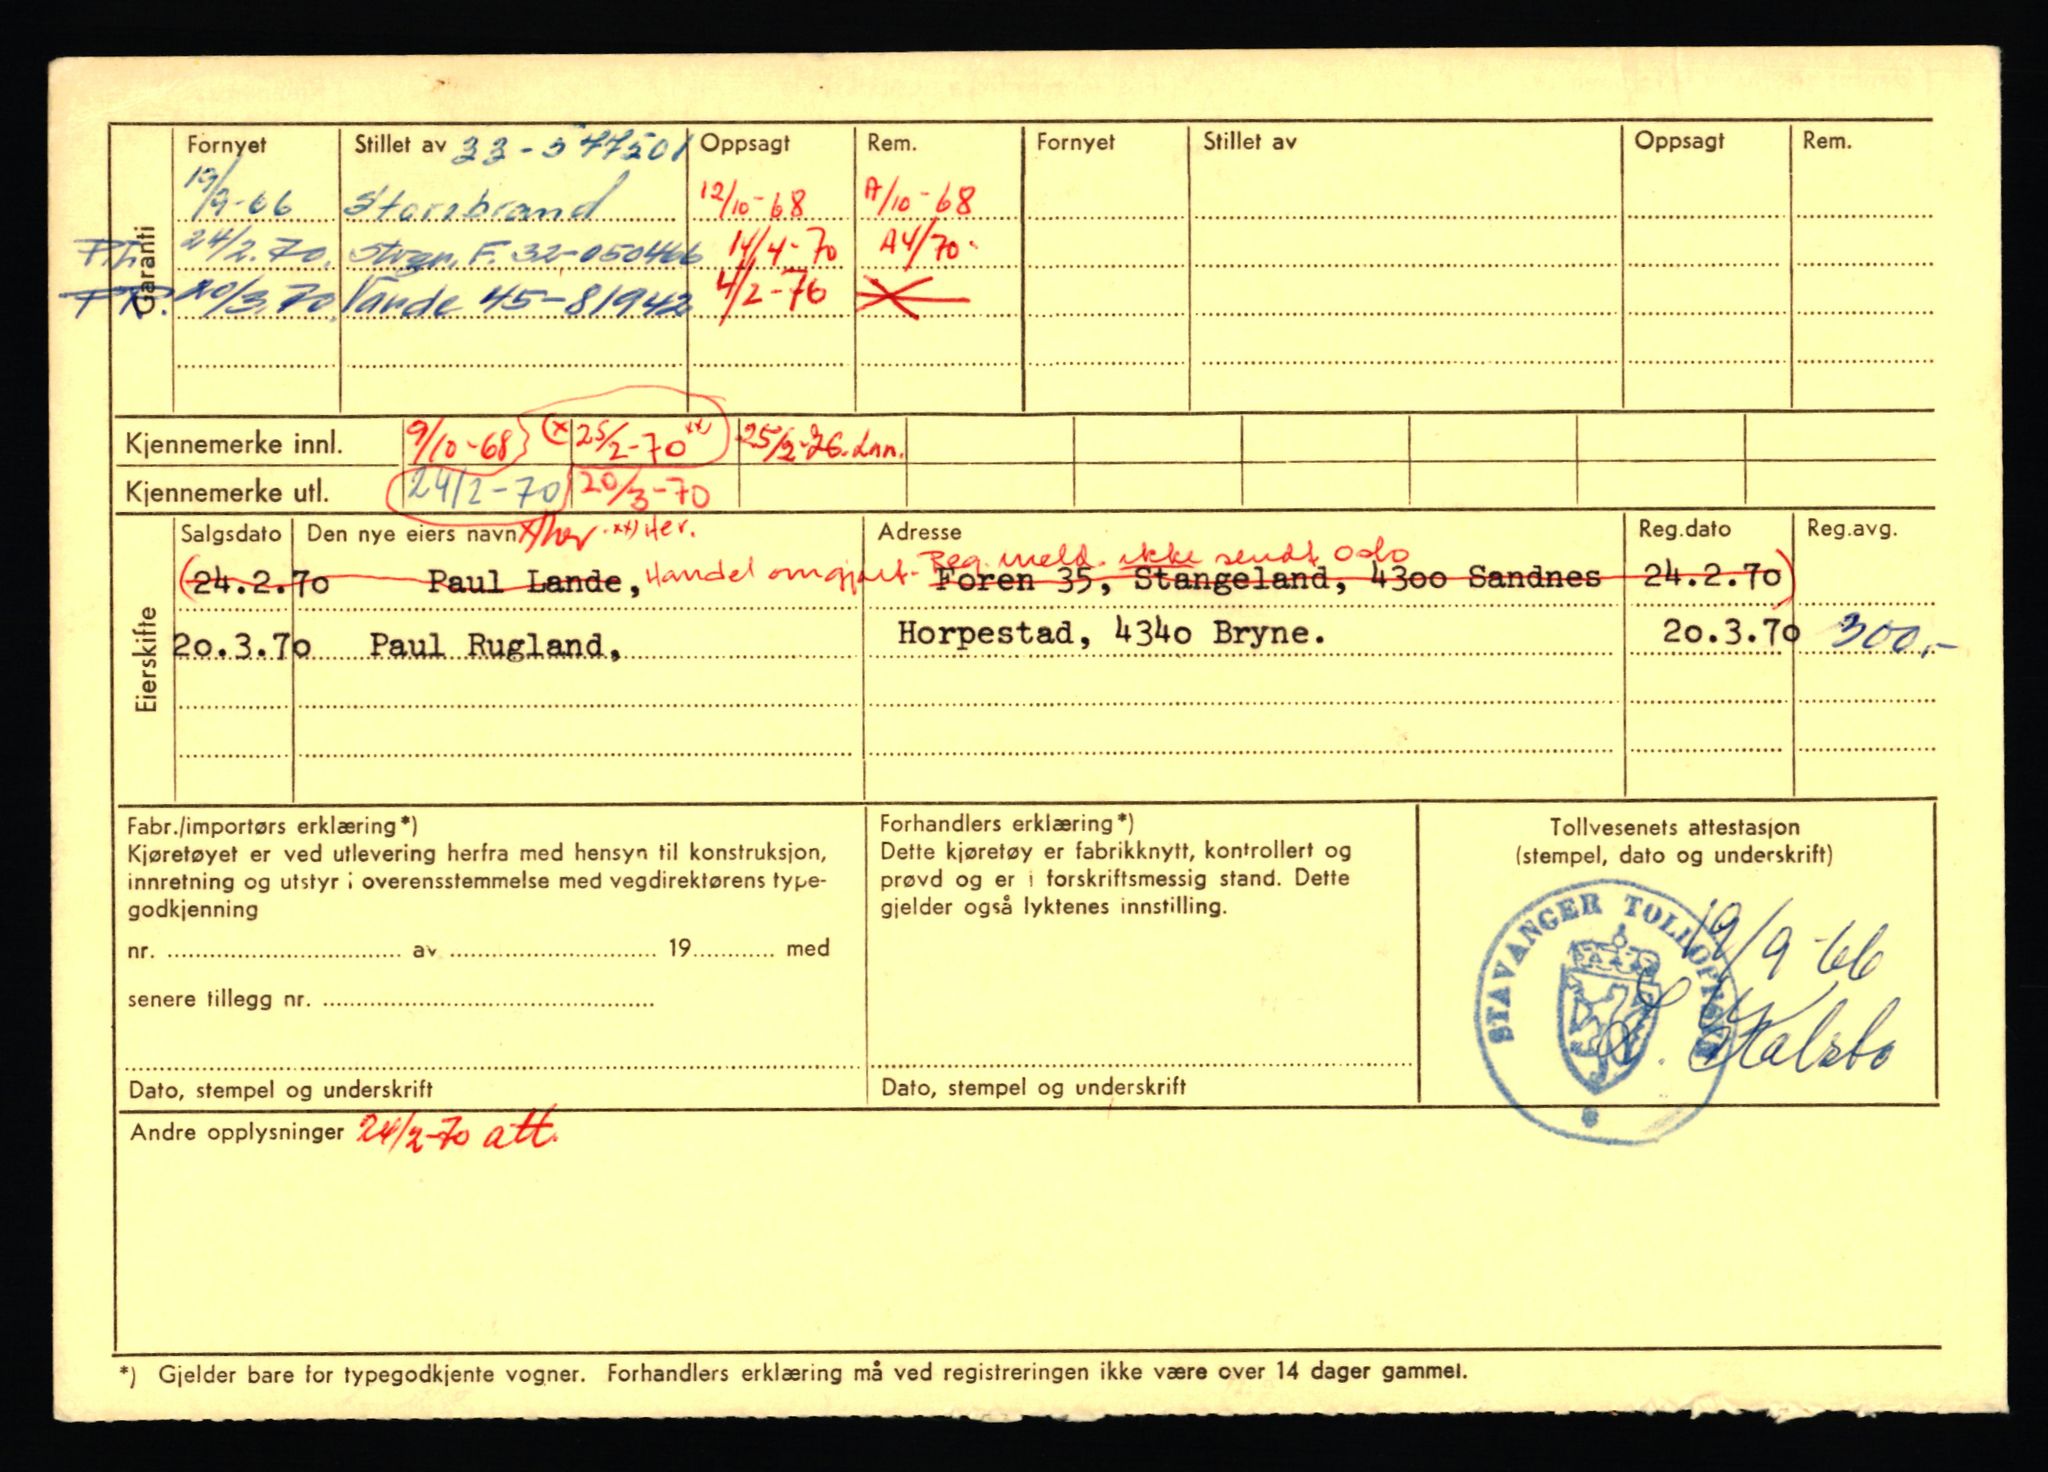 Garanti
Fornyet Stillet av 33-577501 Oppsagt Rem. Fornyet Stillet av Oppsagt Rem.
19/9-66 Storebrand 12/10-68 A/10-68
P.L. 24/2.70. Stvgr. F. 32-050466 14/4-70 A4/70.
P.R. 20/3.70. Varde 45-81942 4/2-76
Kjennemerke innl. 9/10-68 (x 25/2-70 xx) 25/2-76. Lnn.
Kjennemerke utl. 24/2-70 20/3-70
Eierskifte
Salgsdato Den nye eiers navn x) her xx) Her. Adresse Reg.dato Reg.avg.
Reg.meld. ikke sendt Oslo
(24.2.70 Paul Lande, Handel omgjort- Foren 35, Stangeland, 4300 Sandnes 24.2.70)
20.3.70 Paul Rugland, Horpestad, 4340 Bryne. 20.3.70 300,-
Fabr./importørs erklæring*)
Kjøretøyet er ved utlevering herfra med hensyn til konstruksjon,
innretning og utstyr i overensstemmelse med vegdirektørens type-
godkjenning
nr. av 19 med
senere tillegg nr.
Dato, stempel og underskrift
Forhandlers erklæring*)
Dette kjøretøy er fabrikknytt, kontrollert og
prøvd og er i forskriftsmessig stand. Dette
gjelder også lyktenes innstilling.
Dato, stempel og underskrift
Tollvesenets attestasjon
(stempel, dato og underskrift)
STAVANGER
19/9-66
Andre opplysninger 24/2-70 att.
*) Gjelder bare for typegodkjente vogner. Forhandlers erklæring må ved registreringen ikke være over 14 dager gammel.